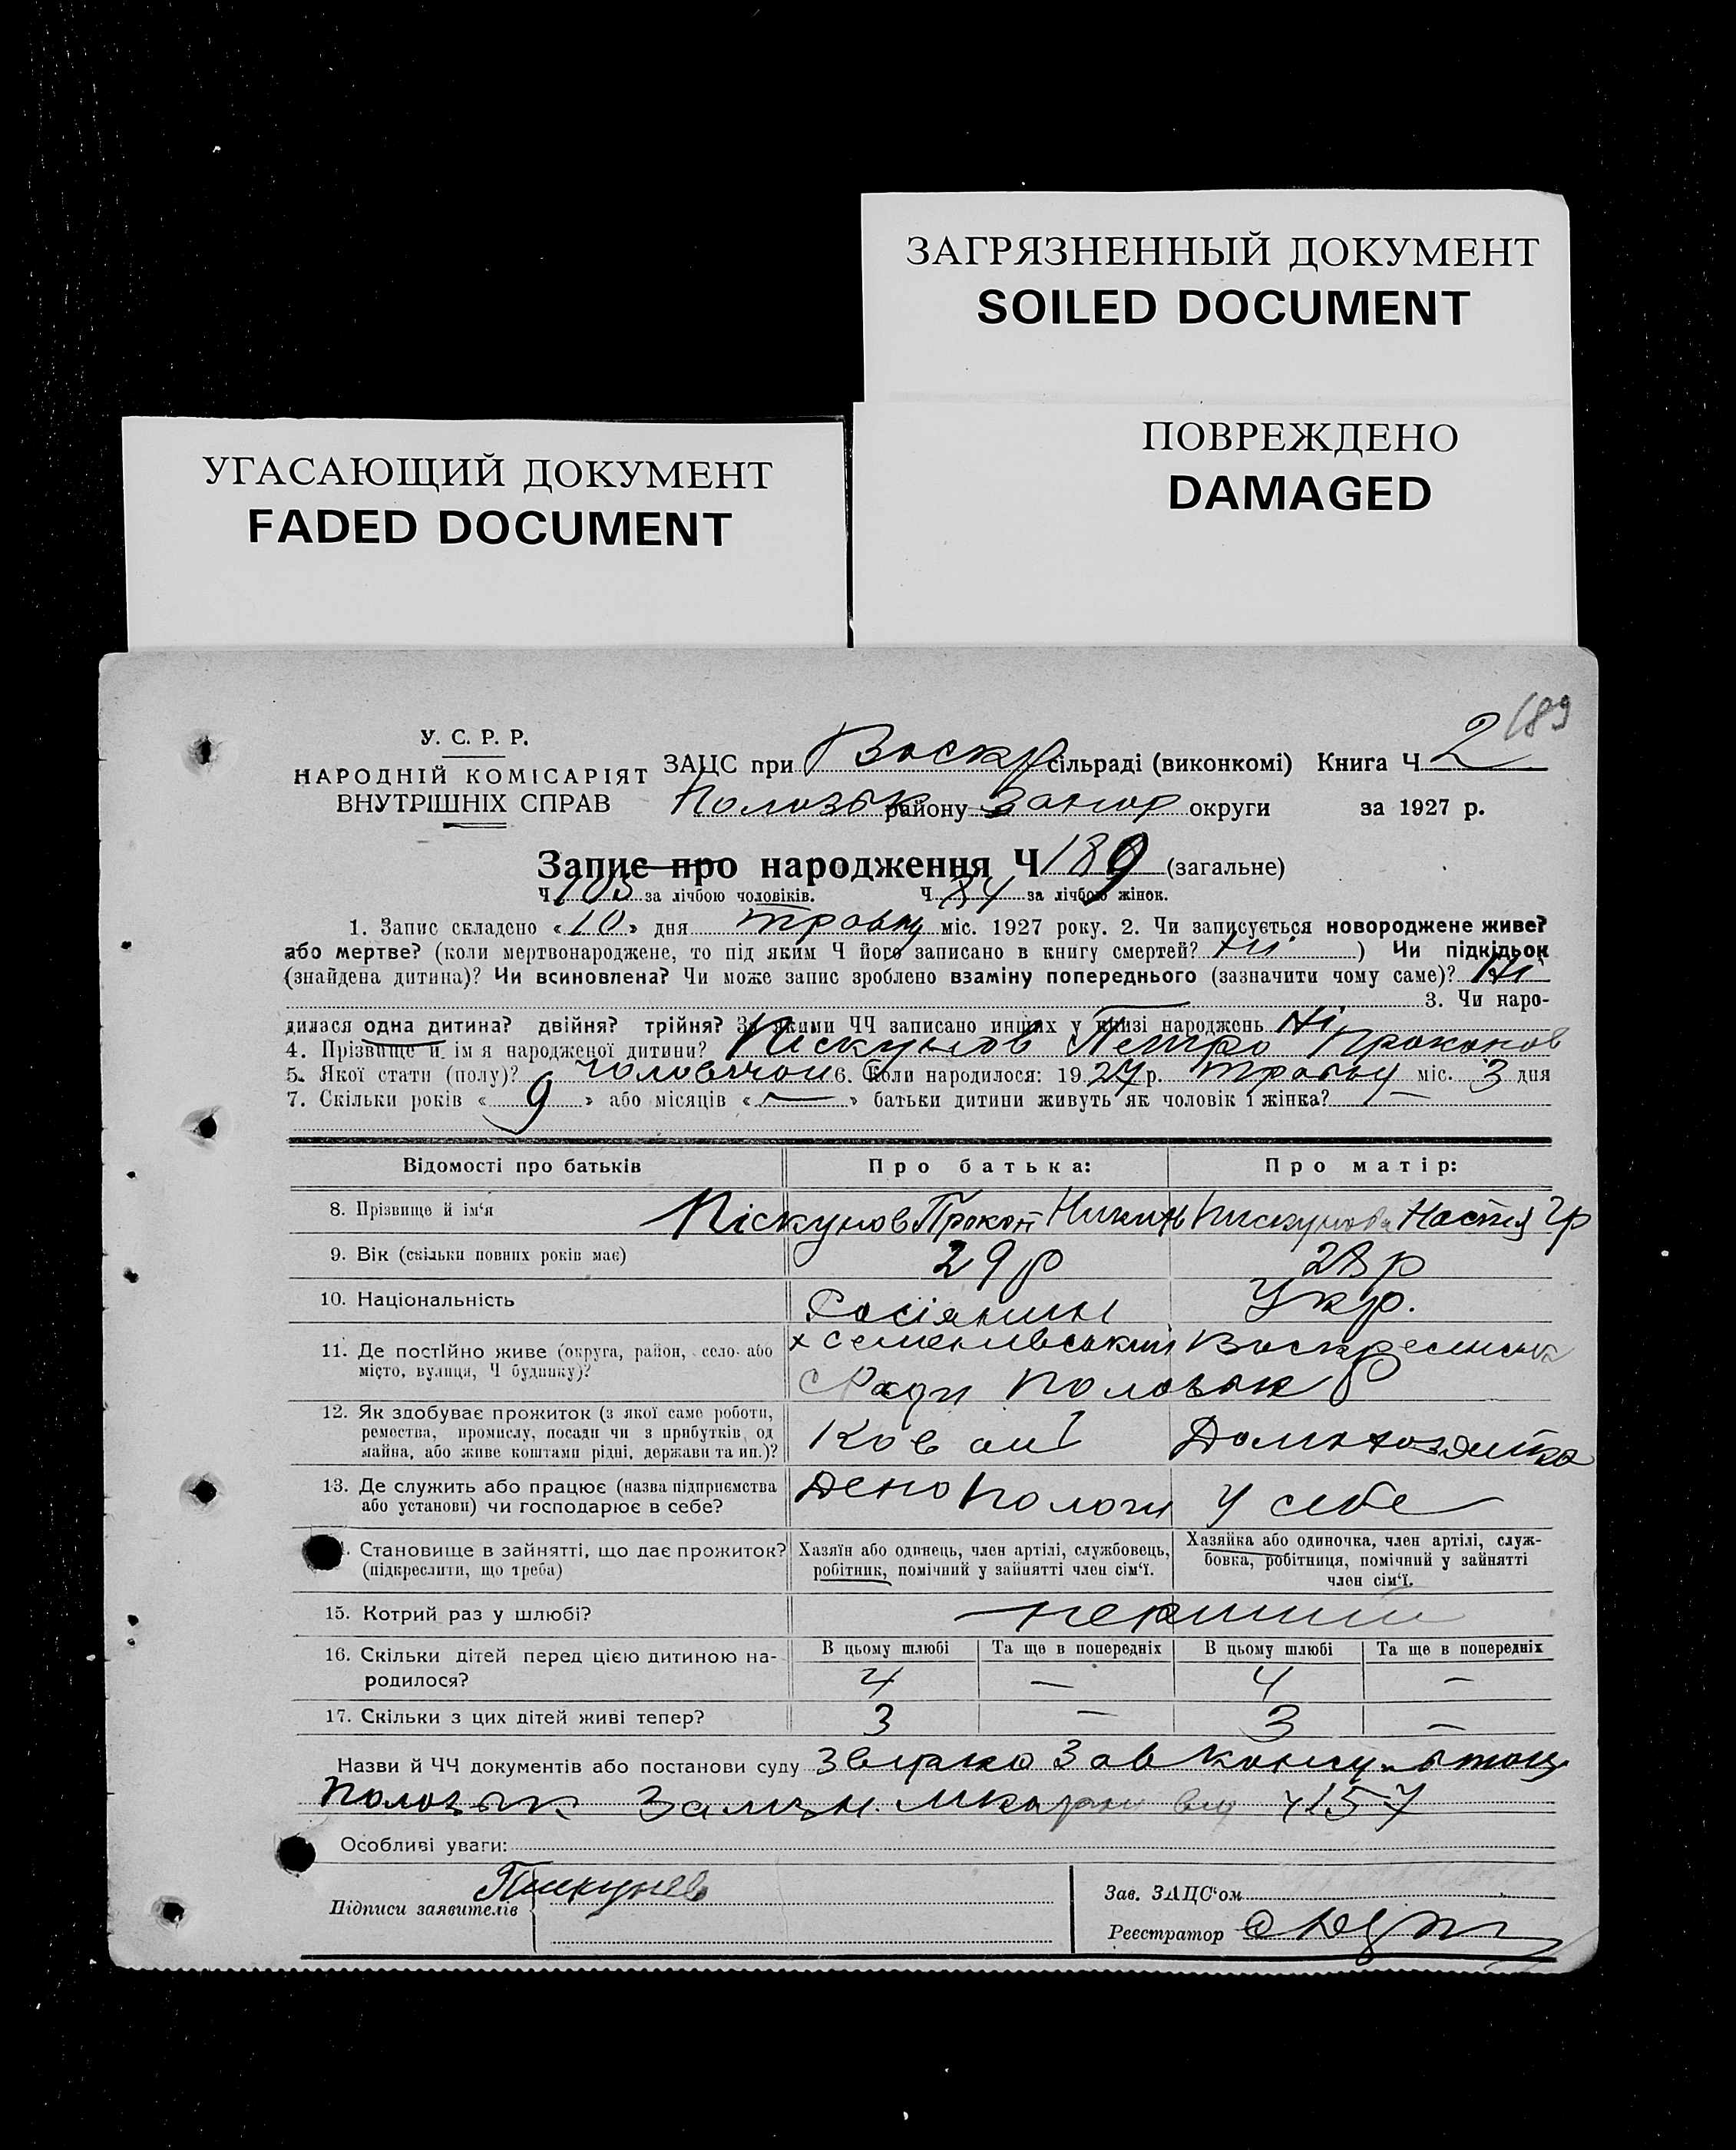 ЗАГРЯЗНЕННЫЙ ДОКУМЕНТ
SOILED DOCUMENT
ПОВРЕЖДЕНО
DAMAGED
УГАСАЮЩИЙ ДОКУМЕНТ
FADED DOCUMENT
189
У. С. Р. Р.
НАРОДНІЙ КОМІСАРІЯТ
ВНУТРІШНІХ СПРАВ
ЗАЦС при Воскр сільраді (виконкомі) Книга Ч 2
Пологьк району Запор округи за 1927 р.
Запис про народження Ч 189 (загальне)
Ч 105 за лічбою чоловіків. Ч 84 за лічбою жінок.
1. Запис складено « 10 » дня травну міс. 1927 року. 2. Чи записується новороджене живе?
або мертве? (коли мертвонароджене, то під яким Ч його записано в книгу смертей? Ні ) Чи підкідьок
(знайдена дитина)? Чи всиновлена? Чи може запис зроблено взаміну попереднього (зазначити чому саме)? Ні
3. Чи наро-
дилася одна дитина? двійня? трійня? За якими ЧЧ записано инших у книзі народжень Ні
4. Прізвище й ім я народженої дитини? Піскунов Петро Проконов
5. Якої стати (полу)? 6. Коли народилося: 19 27 р. травну міс. 3 дня
7. Скільки років « 9 » або місяців « — » батьки дитини живуть як чоловік і жінка? —
Відомості про батьків Про батька: Про матір:
8. Прізвище й ім‘я Піскунов Прокоп Пискунова Настя Гр
9. Вік (скільки повних років має) 29 р 28 р
10. Національність Росіянин Укр.
11. Де постійно живе (округа, район, село або
місто, вулиця, Ч будинку)?
х Семенівський Воскресенськ
с Ради Пологьк р
12. Як здобуває прожиток (з якої саме роботи,
ремества, промислу, посади чи з прибутків од
майна, або живе коштами рідні, держави та ин.)?
Коваль Домохозяйка
13. Де служить або працює (назва підприємства
або установи) чи господарює в себе?
Депо Пологи У себе
. Становище в зайнятті, що дає прожиток?
(підкреслити, що треба)
Хазяїн або одинець, член артілі, службовець,
робітник, помічний у зайнятті член сім‘ї.
Хазяйка або одиночка, член артілі, служ-
бовка, робітниця, помічний у зайнятті
член сім‘ї.
15. Котрий раз у шлюбі? перший
16. Скільки дітей перед цією дитиною на-
родилося?
В цьому шлюбі Та ще в попередніх В цьому шлюбі Та ще в попередніх
4 — 4 —
17. Скільки з цих дітей живі тепер? 3 — 3 —
Назви й ЧЧ документів або постанови суду Зав
Пологьк
Особливі уваги:
Підписи заявителів Пискунов
Зав. ЗАЦС‘ом
Реєстратор